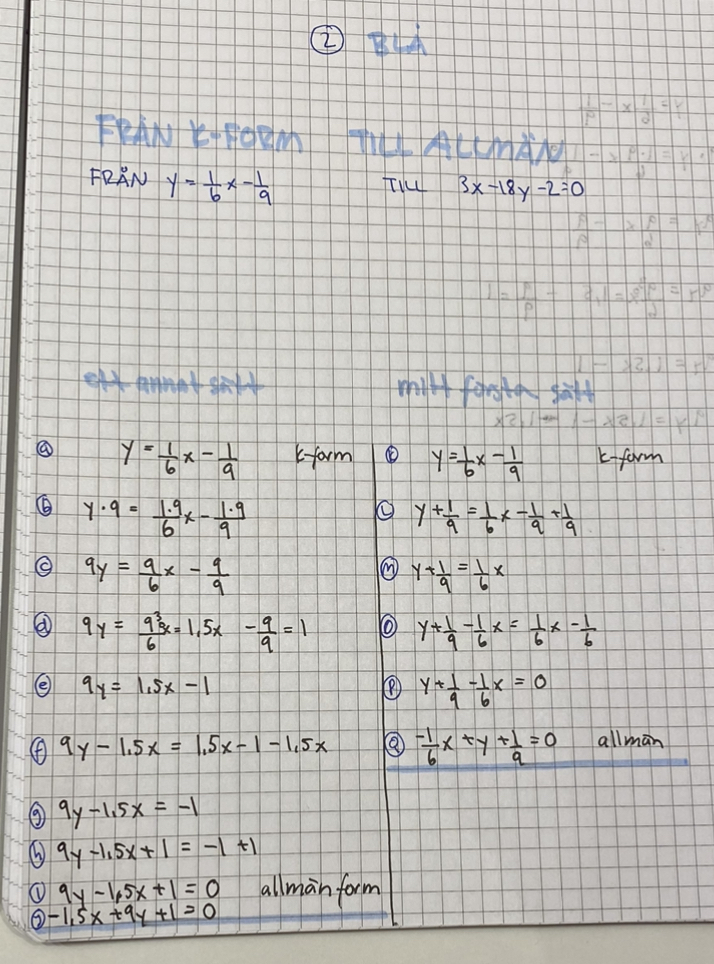 ② BLÅ
FRÅN K-FORM TILL ALLMÄN
FRÅN y = 1/6 x - 1/9 TILL 3x - 18y - 2 = 0
ett annat sätt
ⓐ y = 1/6 x - 1/9 k-form
ⓑ y·9 = 1·9/6 x - 1·9/9
ⓒ 9y = 9/6 x - 9/9
ⓓ 9y = 9³x/6 = 1,5x - 9/9 = 1
ⓔ 9y = 1,5x - 1
ⓕ 9y - 1,5x = 1,5x - 1 - 1,5x
ⓖ 9y - 1,5x = -1
ⓗ 9y - 1,5x + 1 = -1 + 1
ⓘ 9y - 1,5x + 1 = 0 allmän form
-1,5x + 9y + 1 = 0
mitt första sätt
ⓚ y = 1/6 x - 1/9 k-form
Ⓛ y + 1/9 = 1/6 x - 1/9 + 1/9
ⓜ y + 1/9 = 1/6 x
Ⓞ y + 1/9 - 1/6 x = 1/6 x - 1/6
Ⓟ y + 1/9 - 1/6 x = 0
Ⓠ -1/6 x + y + 1/9 = 0 allmän